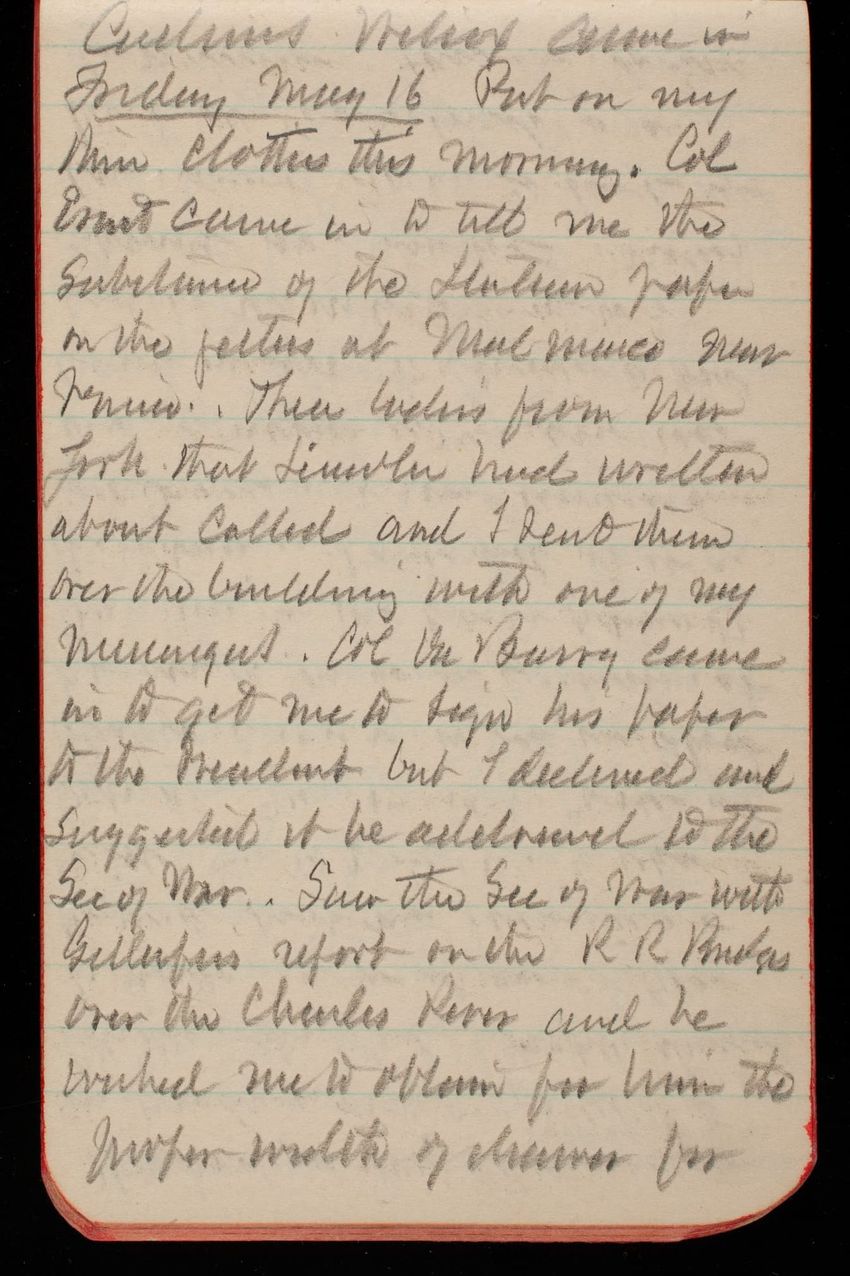 Wilcox came in
Friday May 16 Put on my
thin clothes this morning. Col
Ernst came in to tell me the
substance of the Italian paper
on the jetties at Malamocco near
Venice. Three ladies from New
York that Lincoln had written
about called and I sent them
over the building with one of my
messengers. Col Du Barry came
in to get me to sign his paper
to the President but I declined and
suggested it be addressed to the
Sec of War.. Saw the Sec of War with
Gillespies report on the R R Bridges
over the Charles River and he
wished me to obtain for him the
proper width of draws for